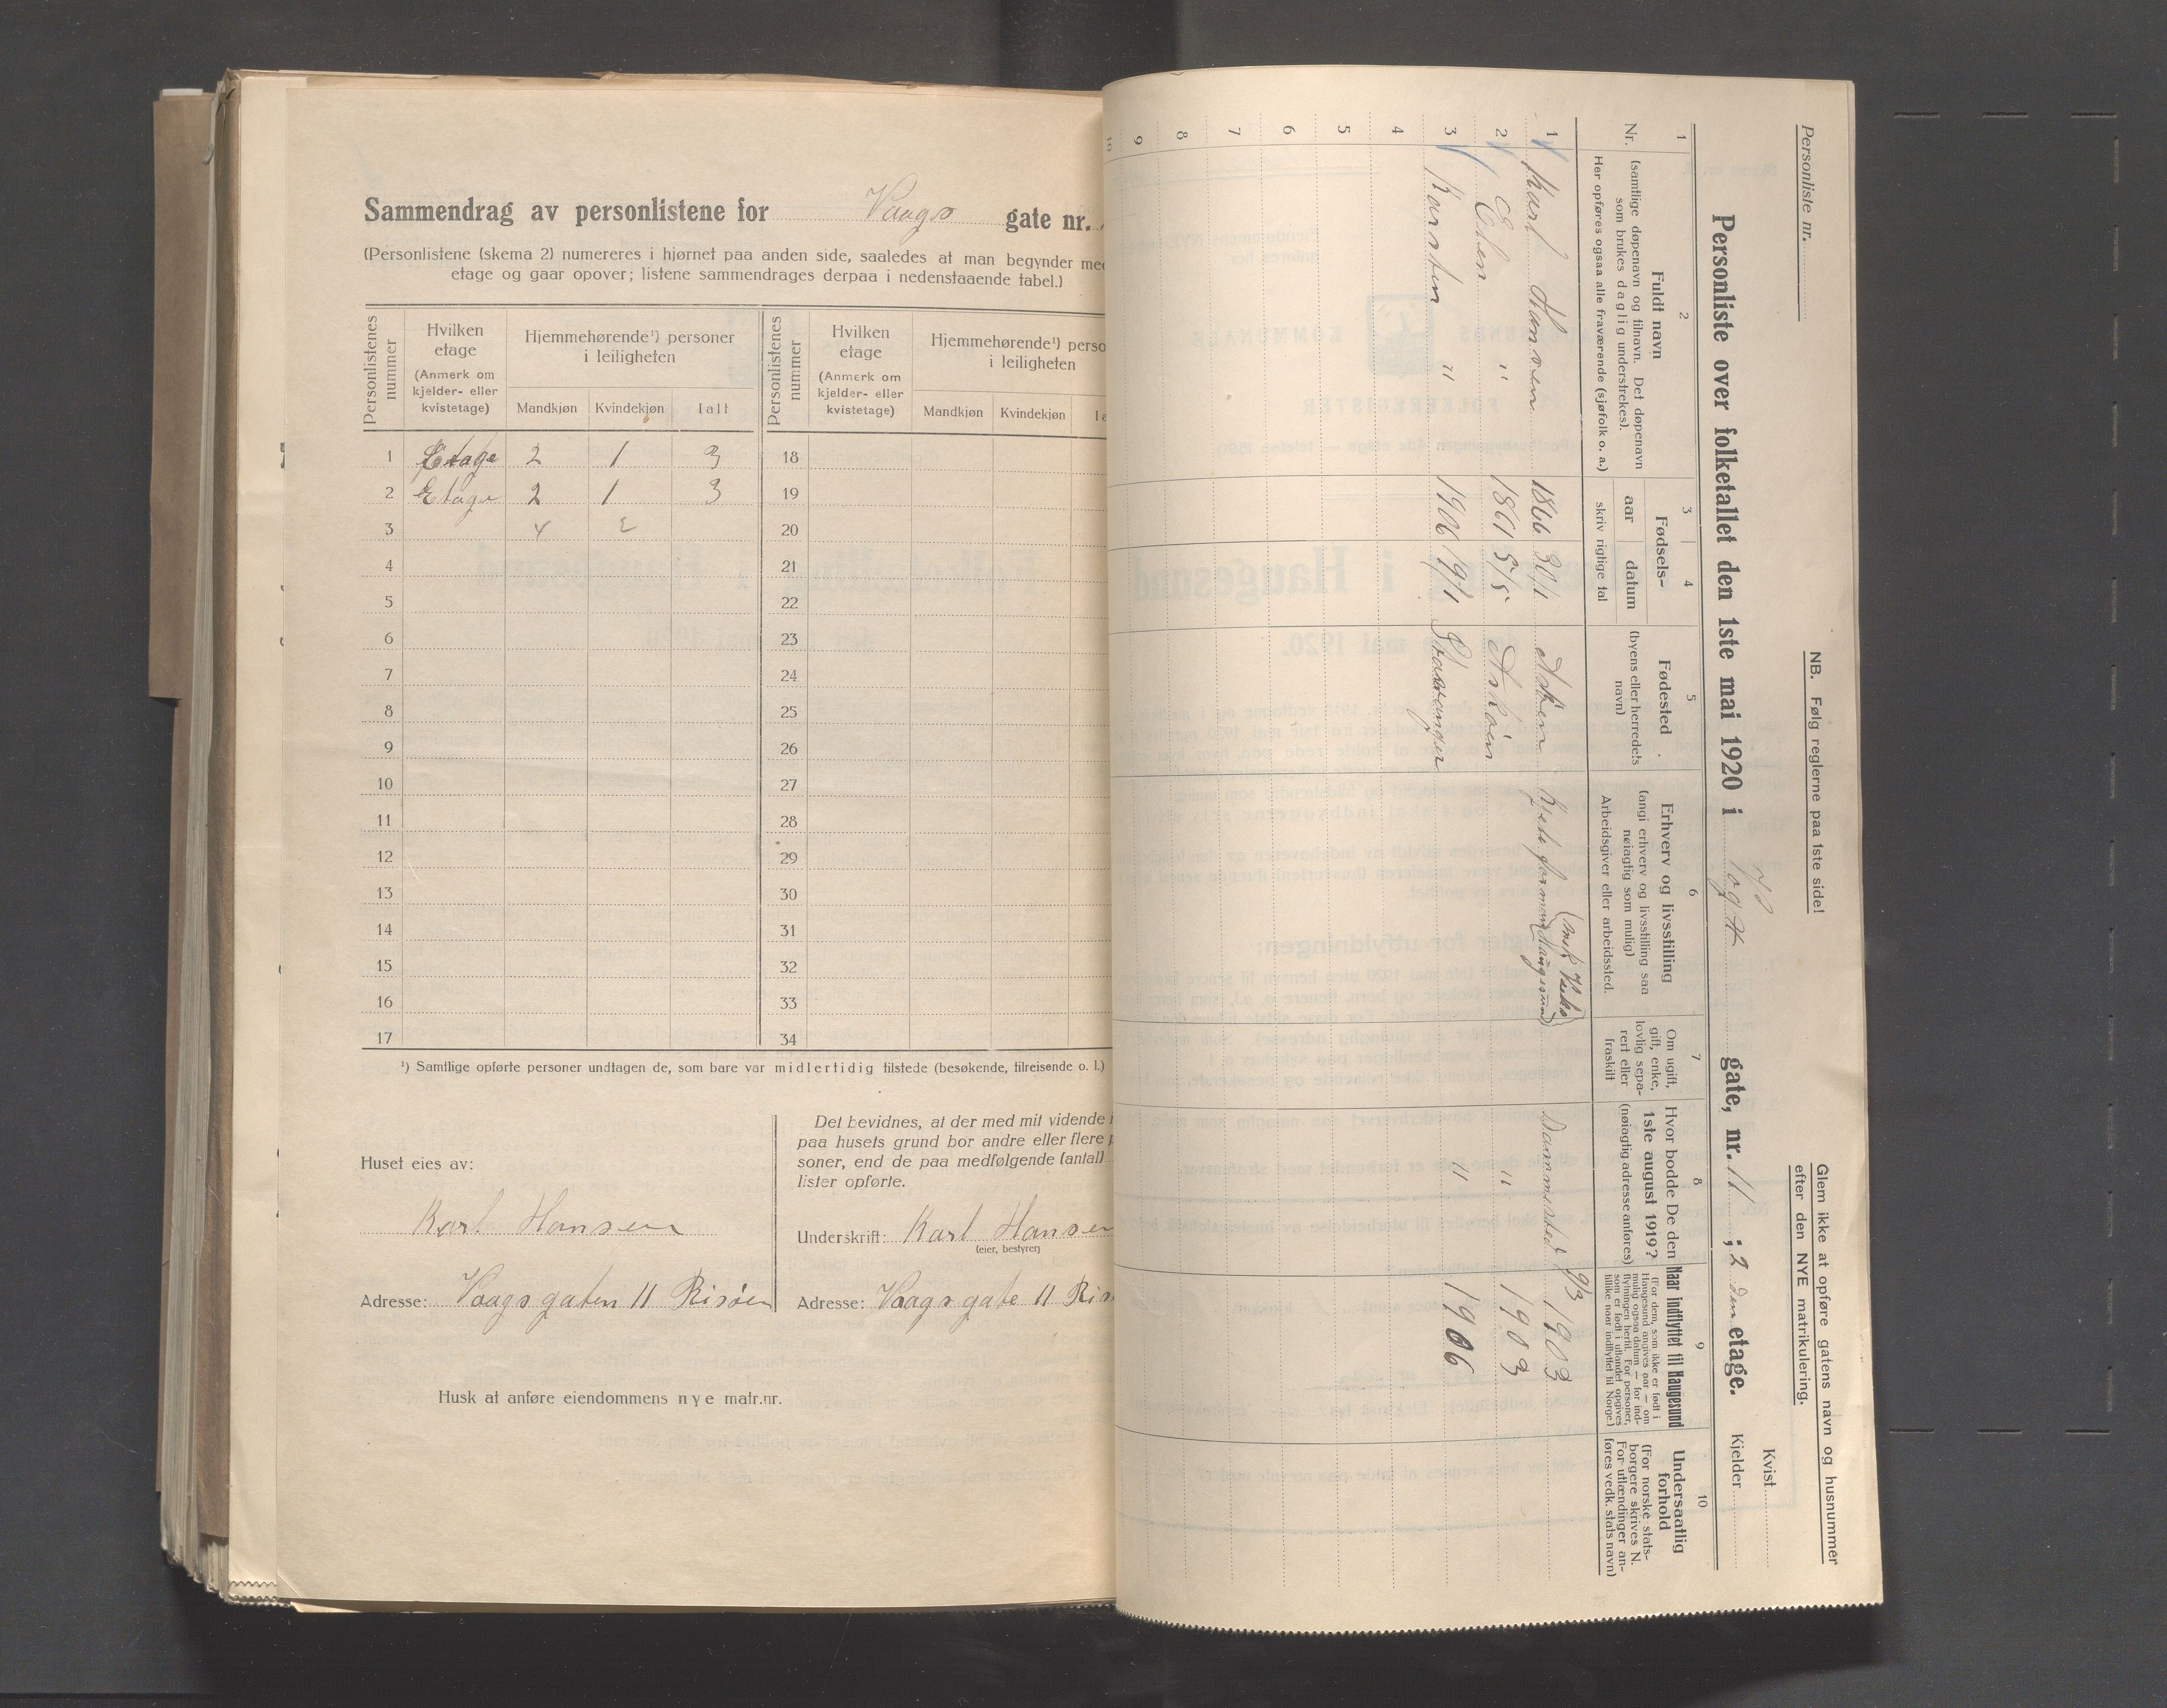 Sammendrag av personlistene for Vaags gate nr.
(Personlistene (skema 2) numereres i hjørnet paa anden side, saaledes at man begynder med
etage og gaar opover; listene sammendrages derpaa i nedenstaaende tabel.)
Personlistenes nummer
Hvilken etage
(Anmerk om kjelder- eller kvistetage)
Hjemmehørende¹) personer i leiligheten
Mandkjøn Kvindekjøn Ialt
Personlistenes nummer
Hvilken etage
(Anmerk om kjelder- eller kvistetage)
Hjemmehørende¹) perso
i leiligheten
Mandkjøn Kvindekjøn
1 Etage 2 1 3 18
2 Etage 2 1 3 19
3 4 2 20
4 21
5 22
6 23
7 24
8 25
9 26
10 27
11 28
12 29
13 30
14 31
15 32
16 33
17 34
¹) Samtlige opførte personer undtagen de, som bare var midlertidig tilstede (besøkende, tilreisende o. l.)
Huset eies av:
Karl Hansen
Adresse: Vaagsgaten 11 Risøen
Det bevidnes, at der med mit vidende
paa husets grund bor andre eller flere
soner, end de paa medfølgende (antal)
lister opførte.
Underskrift: Karl Hansen
(eier, bestyrer)
Adresse: Vaagsgate 11 Ris
Husk at anføre eiendommens nye matr.nr.
Personliste nr.
NB. Følg reglerne paa 1ste side!
Glem ikke at opføre gatens navn og husnummer
efter den NYE matrikulering.
Kvist
Kjelder
Personliste over folketallet den 1ste mai 1920 i gate, nr. 11 ; 2 den etage.
1 2 3 4 5 6 7 8 9 10
Nr.
Fuldt navn
(samtlige døpenavn og tilnavn. Det døpenavn
som brukes daglig understrekes).
Her opføres ogsaa alle fraværende (sjøfolk o. a.)
Fødsels-
aar datum
skriv rigtige tal
Fødested
(byens eller herredets
navn)
Erhverv og livsstilling
(angi erhverv og livsstilling saa
nøiagtig som mulig)
Arbeidsgiver eller arbeidssted.
Om ugift,
gift, enke,
lovlig sepa-
rert eller
fraskilt
Hvor bodde De den
1ste august 1919?
(nøiagtig adresse anføres)
Naar indflyttet til Haugesund
(For dem, som ikke er født i
Haugesund angives aar — om
mulig ogsaa datum — for ind-
flytningen hertil. For personer,
som er født i utlandet opgives
tillike naar indflyttet til Norge.)
Undersaatlig
forhold
(For norske stats-
borgere skrives N.
For utlændinger an-
føres vedk. stats navn)
1 Karl Hansen 1866 30/1 Askøen Haugesund Sammested 9/3 1903
2 Elen " 1861 5/5 Askøen " 1903
3 Karsten " 1906 19/1 Stavanger " 1906
4
5
6
7
8
9
10